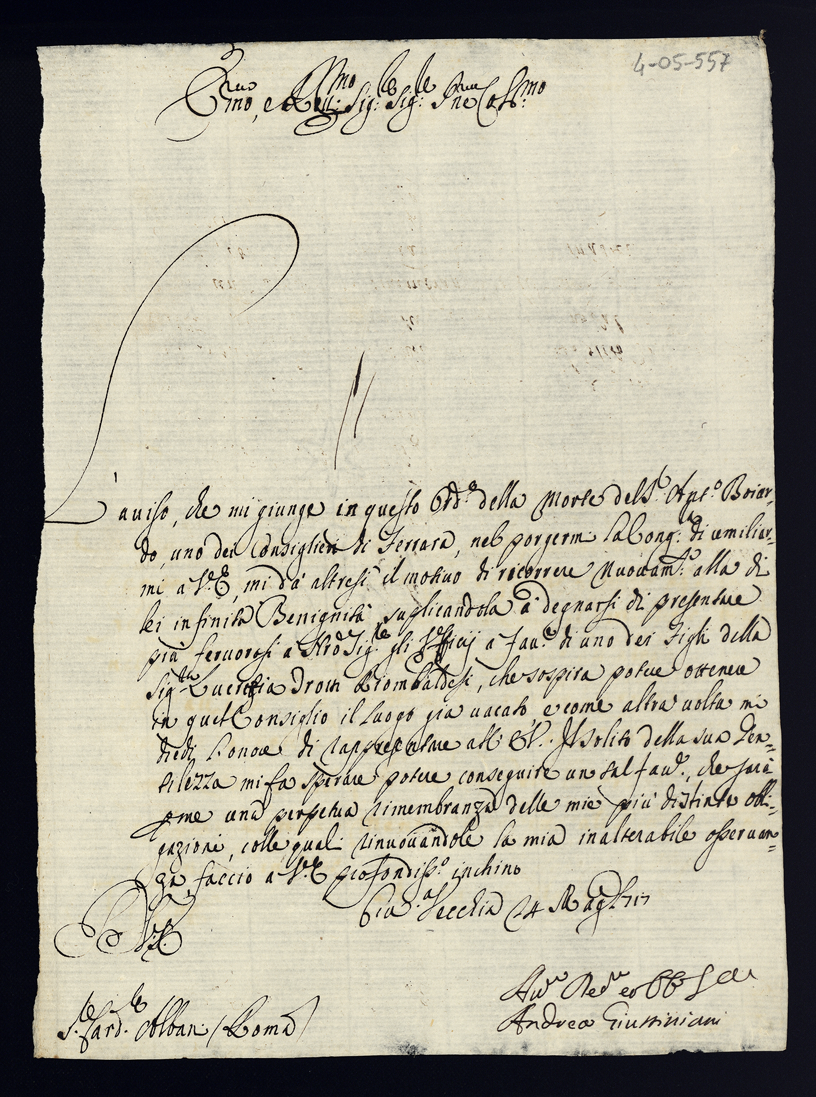 4-05-557
E.mo, e R.mo Sig:re Sig:re P.ne Col.mo
L'
aviso, che mi giunge in questo Ord.o della Morte del S.r Ant.o Boiar-
do, uno dei Consiglieri di Ferrara, nel porgermi la Cong.ra di umiliar-
mi a V.E., mi dà altresì il motivo di ricorrere nuovam.te alla di
lei infinita Benignità, suplicandola à degnarsi di presentare
più fervorosi a gli Uffizij a fav.e di uno dei Figli della
Sig.ra Lucrezia Riombaldesi, che sospira poter ottenere
in quel Consiglio il luogo già vacato, e come altra volta mi
diedi l'onore di rappresentare all' E.V. Il solito della sua Gen-
tilezza mi fa sperare poter conseguire un tal fav.e, che sarà
p me una perpetua rimembranza delle mie più distinte obli-
gazioni, colle quali rinuovandole la mia inalterabile osservan-
za, faccio a V.E. profondiss.o inchino
Civ.a Vecchia 24 Mag.o 1717
D V.E.
S.r Card.le Alban (Roma)
Hu.mo Dev.mo ed Obb.
Andrea Giustiniani